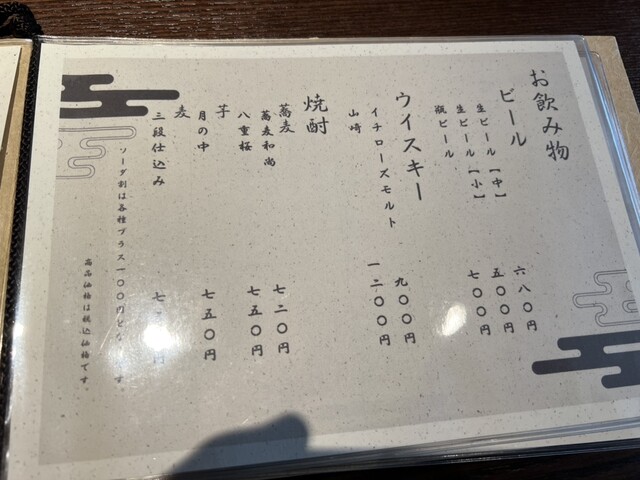 お飲み物
ビール
生ビール【中】 六八〇円
生ビール【小】 五〇〇円
瓶ビール 七〇〇円
ウイスキー
イチローズモルト 九〇〇円
山崎 一二〇〇円
焼酎
蕎麦
蕎麦和尚 七二〇円
八重桜 七五〇円
芋
月の中 七五〇円
麦
三段仕込み
ソーダ割は各種プラス一〇〇円
商品価格は税込価格です。